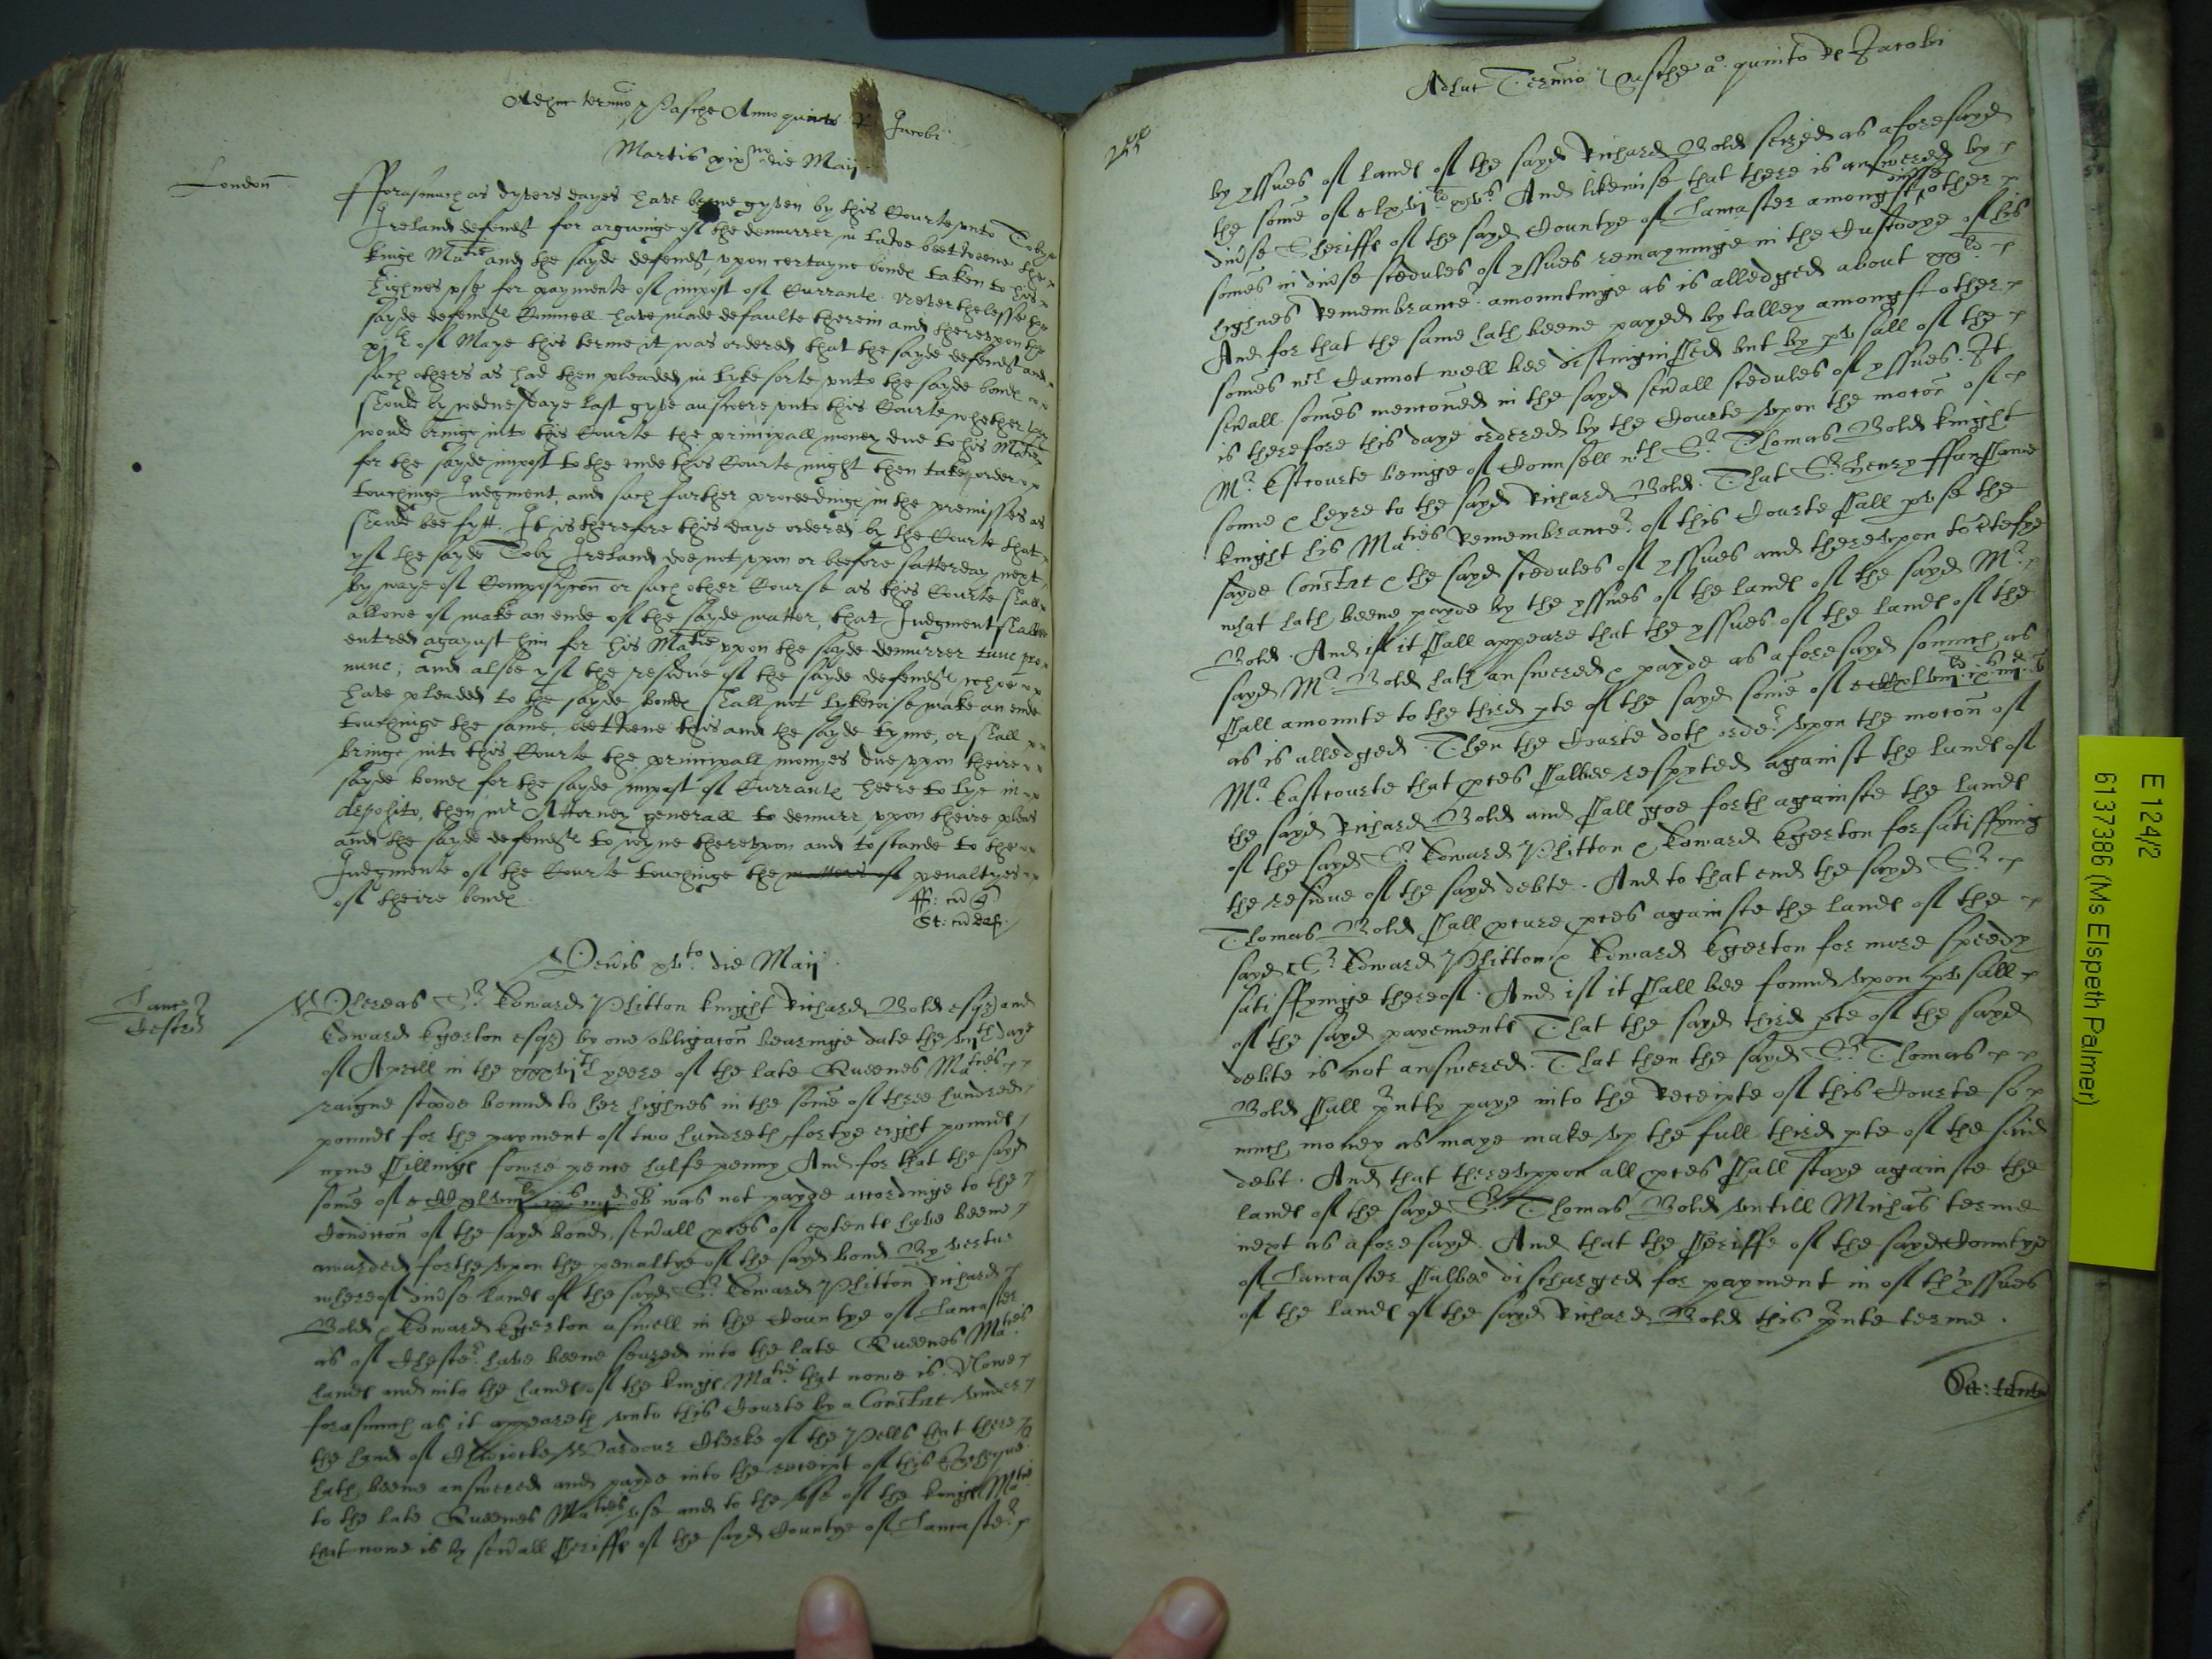 Adhuc termino Pasche Anno quinto R Jacobi
Martis xix no die Maij
London
Fforasmuch as dyvers dayes have beene gyven by this Courte unto Toby
Ireland defendt for arguinge of the demurrer in lawe beetweene the
kinge Matie and the sayde defendt, upon certayne bondes taken to his
highnes use for paymente of impost of Currantes. Neverthelesse the
sayde defendtes Counsell have made defaulte therein and thereupon the
of Maye this terme it was ordered that the sayde defendt and
such others as had then pleaded in lyke sorte unto the sayde bondes
should by wednesdaye last gyve answere unto this Courte whether they
would bringe into this Courte the principall money due to his Matie
for the sayde impost to the ende this Courte might then take order
touchinge Judgment, and such further proceedinges in the premisses as
should bee fytt. It is therefore this daye ordered by the Courte that
yf the sayde Toby Ireland doe not upon or beefore satterday next
by waye of Composycon or such other Course as this Courte shall
allowe of make an ende of the sayde matter, that Judgment shalbe
entred agaynst him for his Matie uppon the sayde demurrer tunc pro
nunc, and alsoe yf the residue of the sayde defendtes whoe
have pleaded to the sayde bondes shall not lykewise make an ende
touchinge the same, beetwene this and the sayde tyme, or shall
bringe into this Courte the principall monyes due uppon theire
sayde bondes for the sayde impost of Currantes heere to lye in
deposito, then mr Attorney generall to demurr uppon theire pleas
and the sayde defendtes to joyne thereupon and to stande to the
Judgmente of the Courte touchinge the matters of penaltyes
of theire bondes.
Jovis die Maij
Lanc
Cestr
Whereas Sr Edward Phitton knight Richard Bold esqr and
Edward Egerton esqr by one obligacon bearinge date the daye
of Aprill in the xxxvith yeere of the late Queenes Maties
raigne stoode bound to her highnes in the some of three hundred
poundes for the payment of two hundreth fortye eight poundes
nyne shillinges fowre pence halfe penny And for that the sayd
some of was not payde accordinge to the
Condicon of the sayd bond, severall pces of extentes have beene
awarded forthe upon the penaltye of the sayd bond By vertue
whereof divse landes of the sayd Sr Edward Phitton Richard
Bold & Edward Egerton aswell in the Countye of Lancaster
as of Chester have beene seized into the late Queenes Maties
handes and into the handes of the kinges Matie that nowe is. Nowe
forasmuch as it appeareth unto this Courte by a Constat under
the hand of Chidiocke Wardour Clerke of the Pells that there
hath beene answered and payde into the receipt of this Exchequer
to the late Queenes Maties use and to the use of the kinges Matie
that nowe is by severall sheriffes of the sayd Countye of Lancaster
Adhuc Termino Pasche ao quinto R Jacobi
by yssues of landes of the sayd Richard Bold seized as aforesayd
the some of And likewise that there is answered by
divse Sheriffes of the sayd Countye of Lancaster amongst divse other
somes in divse scedules of yssues remayninge in the Custodye of his
highnes Remembrancer amountinge as is alledged about
And for that the same hath beene payed by talley amongst other
somes wch Cannot well bee distinguished but by pusall of the
severall somes mencioned in the sayd severall scedules of yssues. It
is therefore this daye ordered by the Courte upon the mocon of
Mr Estcourte beinge of Counsell wth Sr Thomas Bold knight
sonne & heyre to the sayd Richard Bold. That Sr Henry Ffanshawe
knight his Maties Remembrancer of this Courte shall puse the
sayde Constat & the sayd scedules of yssues and thereupon to certefye
what hath beene payde by the yssues of the landes of the sayd Mr
Bold. And if it shall appeare that the yssues of the landes of the
sayd Mr Bold hath answered & payde as aforesayd somuch as
shall amounte to the third pte of the sayd some of
as is alledged. Then the Courte doth order upon the mocon of
Mr Eastcourte that pces shalbee respyted against the landes of
the sayd Richard Bold and shall goe forth againste the landes
of the sayd Sr Edward Phitton & Edward Egerton for satisffying
the residue of the sayd debte. And to that end the sayd Sr
Thomas Bold shall pcure pces againste the landes of the
sayd Sr Edward Phitton & Edward Egerton for more speedy
satisffyinge thereof. And if it shall bee found upon pusall
of the sayd paymentes That the sayd third pte of the sayd
debte is not answered. That then the sayd Sr Thomas
Bold shall pntly paye into the Receipte of this Courte so
much money as maye make up the full third pte of the said
debt. And that thereuppon all pces shall staye againste the
landes of the sayd Sr Thomas Bold untill Michas terme
next as aforesayd. And that the sheriffe of the sayd Countye
of Lancaster shalbee discharged for payment in of th'yssues
of the landes of the sayd Richard Bold this pnte terme.
E 124/2
6137386 (Ms Elspeth Palmer)